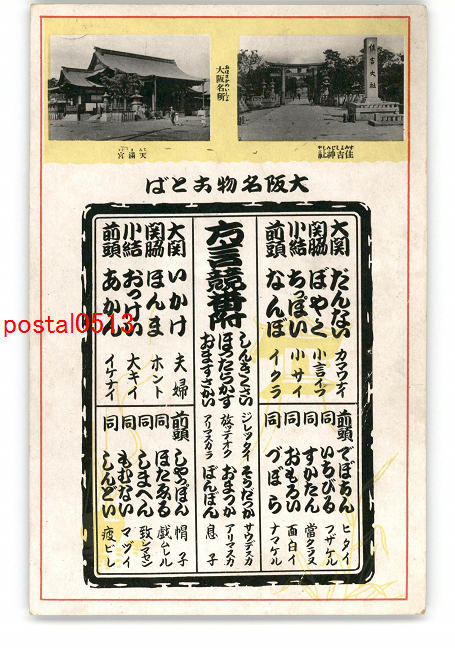 大阪名所
おほさかめいしよ
住吉神社
すみよしじんじや
住吉大社
天満宮
てんまんぐう
大阪名物おとば
方言競番附
大関 だんない カマワナイ
関脇 ぼやく 小言イフ
小結 ちつぽい 小サイ
前頭 なんぼ イクラ
前頭 でぼちん ヒタイ
同 いちびる フザケル
同 すかたん 當クラズ
同 おもろい 面白イ
同 づぼら ナマケル
しんきくさい ジレッタイ
ほつたらかす 放ッテオク
おますさかい アリマスカラ
そうだつか サウデスカ
おまつか アリマスカ
ぼんぼん 息子
大関 いかけ 夫婦
関脇 ほんま ホント
小結 おつけい 大キイ
前頭 あかん イケナイ
前頭 しやつぽん 帽子
同 ほたゑる 戯ムレル
同 しまへん 致シマセン
同 もむない マヅイ
同 しんどい 疲ビレ
postal0513